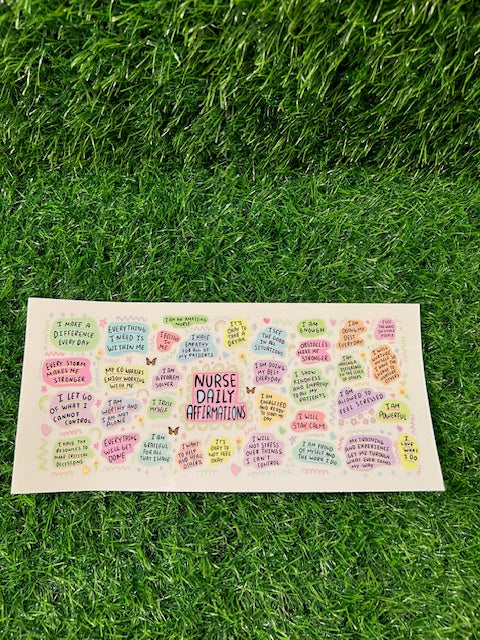 I AM AN AMAZING
NURSE
I MAKE A
DIFFERENCE
EVERY DAY
EVERYTHING
I NEED IS
WITHIN ME
I BELIEVE
IN ME
I HAVE
EMPATHY
FOR ALL OF
MY PATIENTS
IT'S
OKAY TO
TAKE A
BREAK
I SEE
THE GOOD
IN ALL
SITUATIONS
I AM
ENOUGH
I AM
DOING MY
BEST
EVERYDAY
I SEE
THE GOOD
IN OTHER
PEOPLE
EVERY STORM
MAKES ME
STRONGER
MY CO WORKERS
ENJOY WORKING
WITH ME
I AM
A PROBLEM
SOLVER
NURSE
DAILY
AFFIRMATIONS
I AM DOING
MY BEST
EVERYDAY
OBSTACLES
MAKE ME
STRONGER
I SHOW
KINDNESS
AND EMPATHY
TO ALL
MY
PATIENTS
I LET GO
OF WHAT I
CANNOT
CONTROL
I AM
WORTHY AND
AM NOT
ALONE
I TRUST
MYSELF
I AM
ENERGIZED
AND READY
TO START
MY DAY
I WILL
STAY CALM
I AM
ALLOWED TO
FEEL STRESSED
I AM
POWERFUL
I HAVE THE
RESOURCES TO
MAKE CRITICAL
DECISIONS
EVERYTHING
WILL GET
DONE
I AM
GRATEFUL
FOR ALL
THAT I HAVE
I WANT
TO HELP
AND HEAL
OTHERS
IT'S
OKAY TO
NOT FEEL
OKAY
I WILL
NOT STRESS
OVER THINGS
I CAN'T
CONTROL
I AM PROUD
OF MYSELF AND
THE WORK I DO
MY TRAINING
AND EXPERIENCE
GET ME THROUGH
WHAT EVER COMES
MY WAY
I LOVE
WHAT
I DO